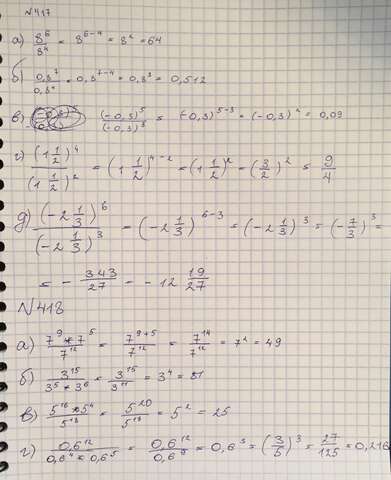 №417
а) 8⁶/8⁴ = 8⁶⁻⁴ = 8² = 64
б) 0,8⁷/0,8⁴ = 0,8⁷⁻⁴ = 0,8³ = 0,512
в) (-0,3)⁵/(-0,3)³ = (-0,3)⁵⁻³ = (-0,3)² = 0,09
г) (1 1/2)⁴/(1 1/2)² = (1 1/2)⁴⁻² = (1 1/2)² = (3/2)² = 9/4
д) (-2 1/3)⁶/(-2 1/3)³ = (-2 1/3)⁶⁻³ = (-2 1/3)³ = (-7/3)³ =
= - 343/27 = - 12 19/27
№418
а) 7⁹*7⁵/7¹² = 7⁹⁺⁵/7¹² = 7¹⁴/7¹² = 7² = 49
б) 3¹⁵/3⁵*3⁶ = 3¹⁵/3¹¹ = 3⁴ = 81
в) 5¹⁶*5⁴/5¹⁸ = 5²⁰/5¹⁸ = 5² = 25
г) 0,6¹²/0,6⁴*0,6⁵ = 0,6¹²/0,6⁹ = 0,6³ = (3/5)³ = 27/125 = 0,216